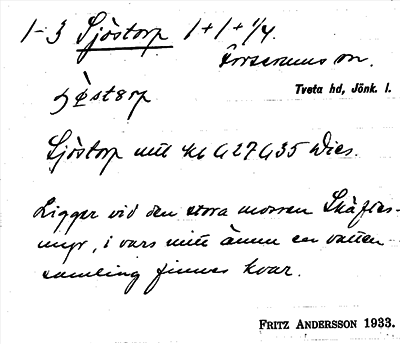 1-3 Sjöstorp 1+1+1/4.
Forserums sn.
Tveta hd, Jönk. l.
Sjöstorp utt kb G27 G35 Wies.
Ligger vid den stora mossen Skäfles-
myr, i vars mitt ännu en vatten-
samling finnes kvar.
FRITZ ANDERSSON 1933.